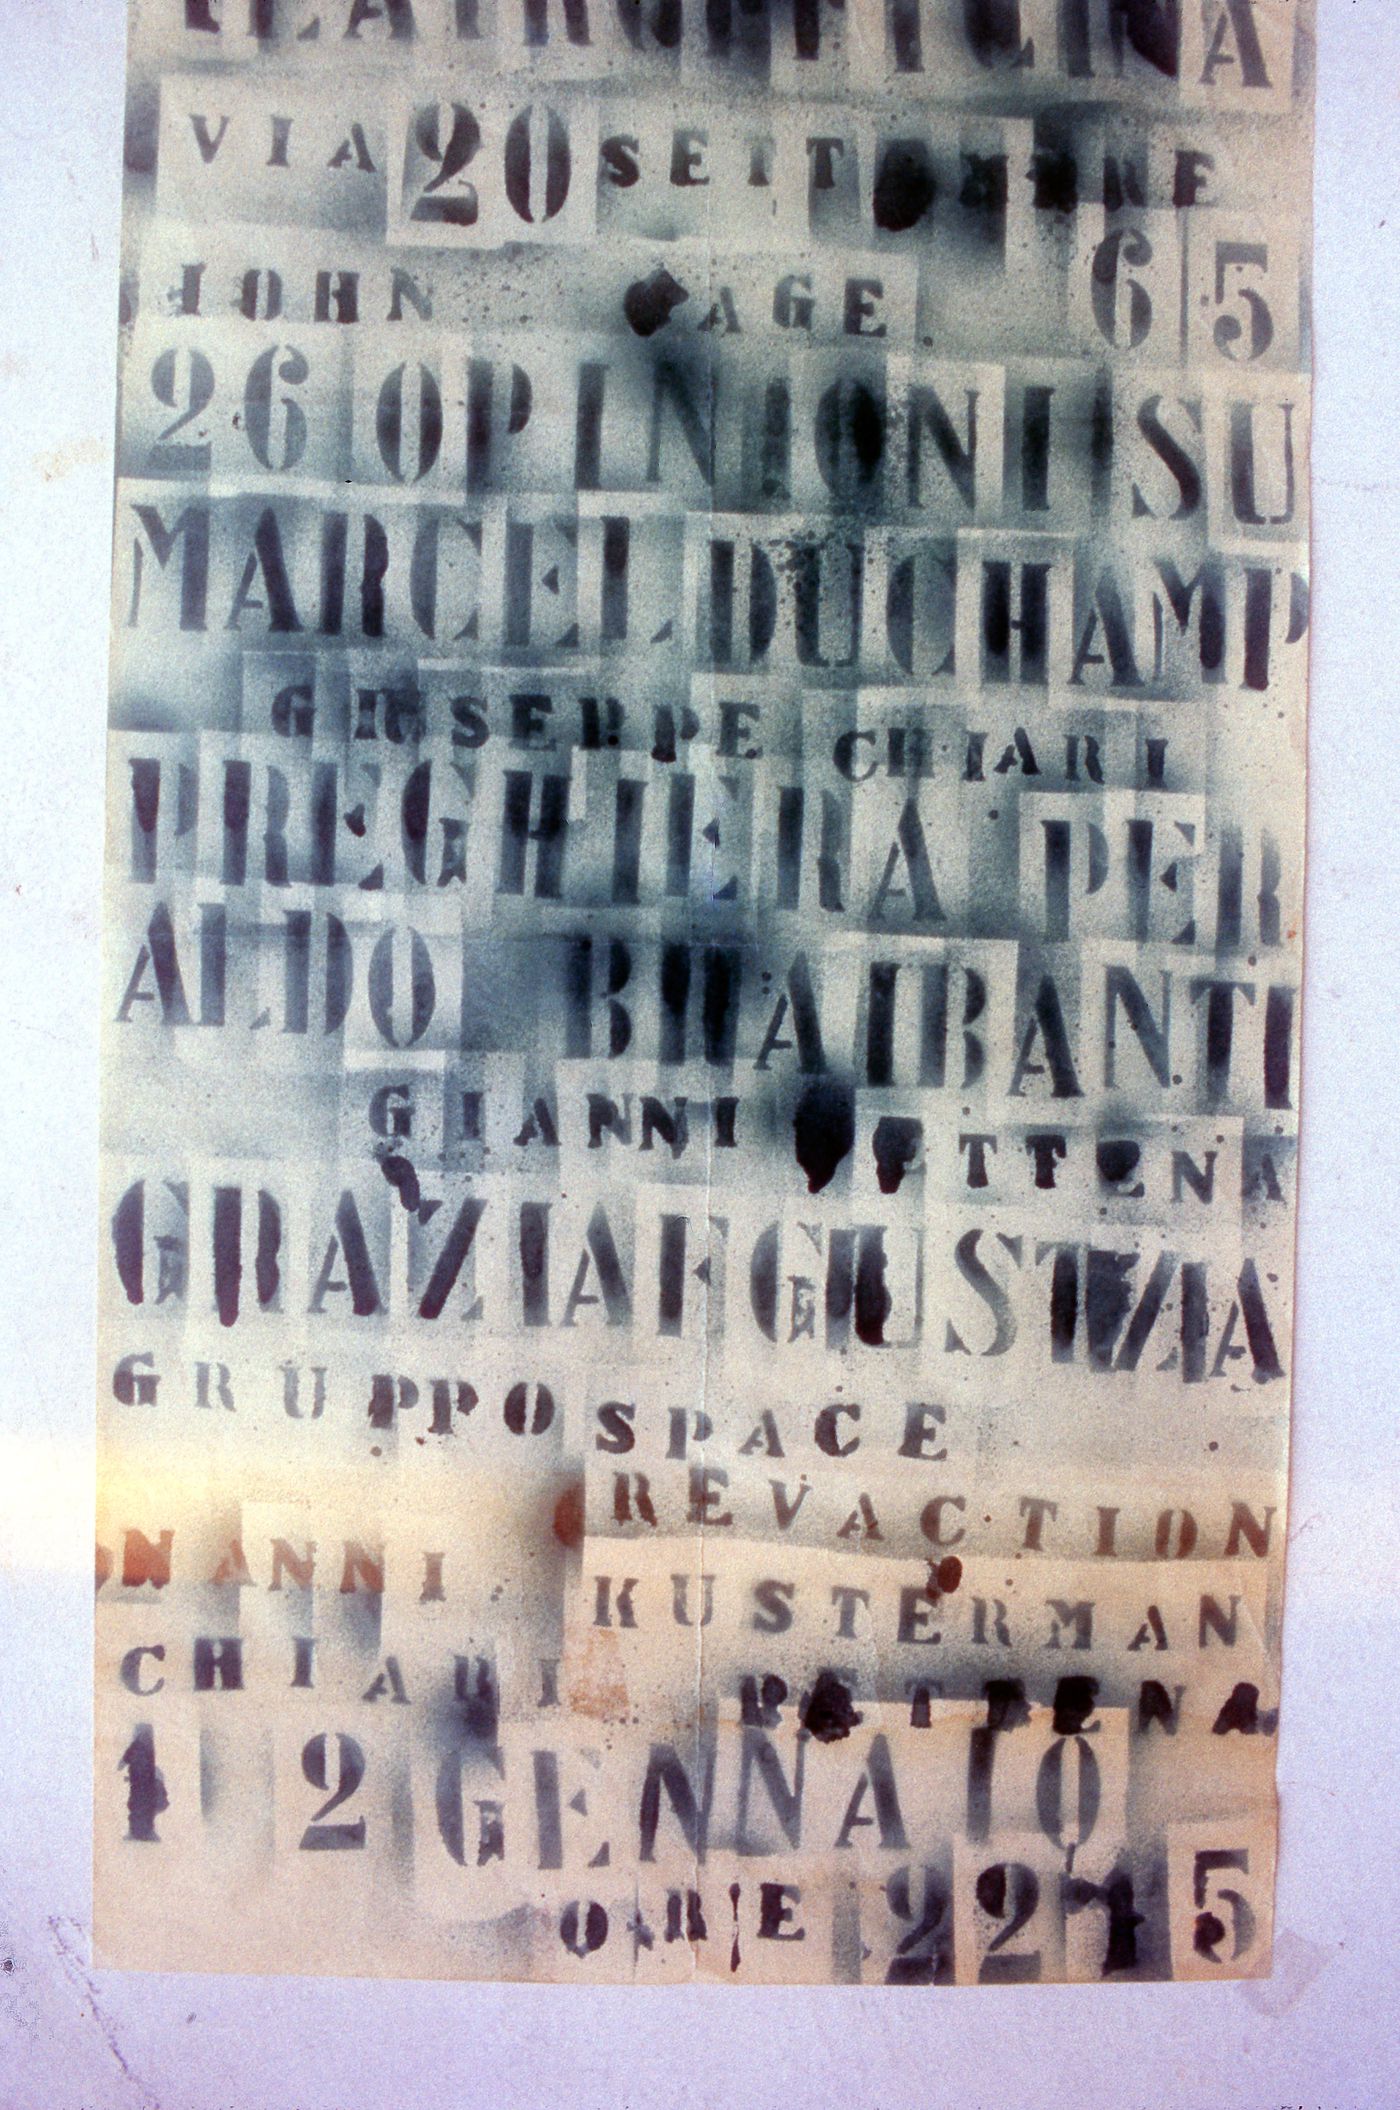 TEATROFFICINA
VIA 20 SETTEMBRE
65
JOHN CAGE
26 OPINIONI SU
MARCEL DUCHAMP
GIUSEPPE CHIARI
PREGHIERA PER
ALDO BRAIBANTI
GIANNI PETTENA
GRAZIA E GIUSTIZIA
GRUPPO SPACE
REVACTION
NANNI
KUSTERMAN
CHIARI PETTENA
12 GENNAIO
ORE 2215